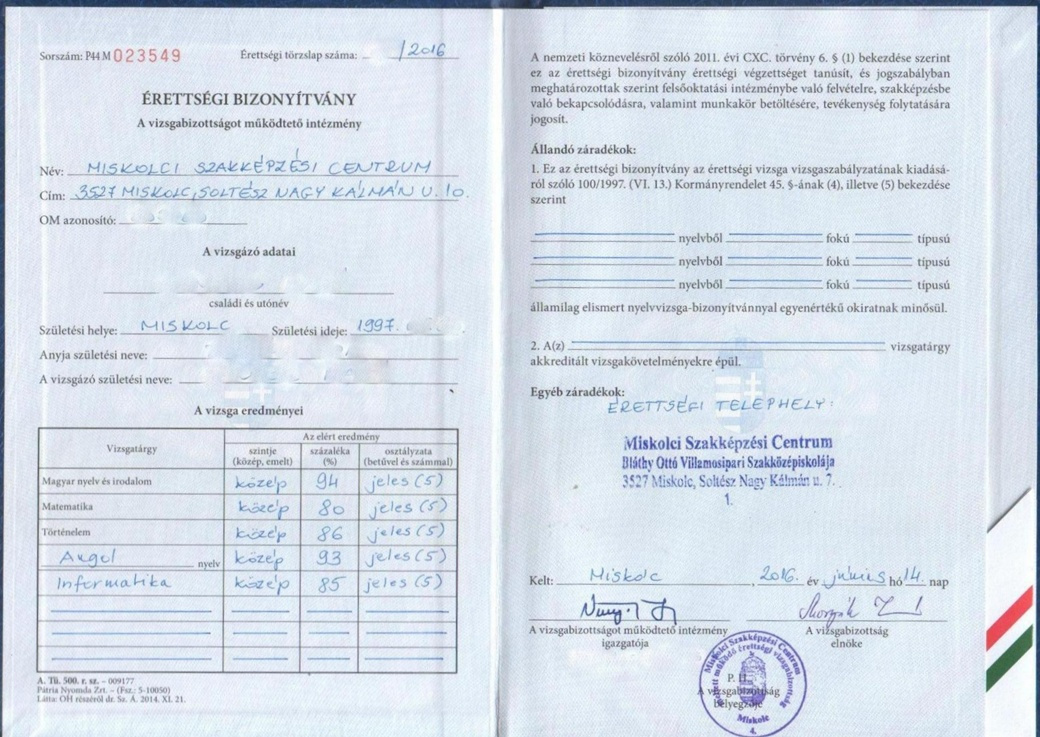 Sorszám: P44 M 023549 Érettségi törzslap száma: /2016
ÉRETTSÉGI BIZONYÍTVÁNY
A vizsgabizottságot működtető intézmény
Név: MISKOLCI SZAKKÉPZÉSI CENTRUM
Cím: 3527 MISKOLC, SOLTÉSZ NAGY KÁLMÁN U. 10.
OM azonosító:
A vizsgázó adatai
családi és utónév
Születési helye: MISKOLC Születési ideje: 1997.
Anyja születési neve:
A vizsgázó születési neve:
A vizsga eredményei
Vizsgatárgy
Az elért eredmény
szintje (közép, emelt) százaléka (%) osztályzata (betűvel és számmal)
Magyar nyelv és irodalom közép 94 jeles (5)
Matematika közép 80 jeles (5)
Történelem közép 86 jeles (5)
Angol nyelv közép 93 jeles (5)
Informatika közép 85 jeles (5)
A. Tü. 500. r. sz. – 009177
Pátria Nyomda Zrt. – (Fsz.: 5-10050)
Látta: OH részéről dr. Sz. Á. 2014. XI. 21.
A nemzeti köznevelésről szóló 2011. évi CXC. törvény 6. § (1) bekezdése szerint
ez az érettségi bizonyítvány érettségi végzettséget tanúsít, és jogszabályban
meghatározottak szerint felsőoktatási intézménybe való felvételre, szakképzésbe
való bekapcsolódásra, valamint munkakör betöltésére, tevékenység folytatására
jogosít.
Állandó záradékok:
1. Ez az érettségi bizonyítvány az érettségi vizsga vizsgaszabályzatának kiadásá-
ról szóló 100/1997. (VI. 13.) Kormányrendelet 45. §-ának (4), illetve (5) bekezdése
szerint
nyelvből fokú típusú
nyelvből fokú típusú
nyelvből fokú típusú
államilag elismert nyelvvizsga-bizonyítvánnyal egyenértékű okiratnak minősül.
2. A(z) vizsgatárgy
akkreditált vizsgakövetelményekre épül.
Egyéb záradékok:
ÉRETTSÉGI TELEPHELY:
Miskolci Szakképzési Centrum
Bláthy Ottó Villamosipari Szakközépiskolája
3527 Miskolc, Soltész Nagy Kálmán u. 7.
1.
Kelt: Miskolc, 2016. év június hó 14. nap
A vizsgabizottságot működtető intézmény igazgatója
A vizsgabizottság elnöke
P. H.
A vizsgabizottság
bélyegzője
Miskolci Szakképzési Centrum
mellett működő érettségi vizsgabizottság
Miskolc
4.